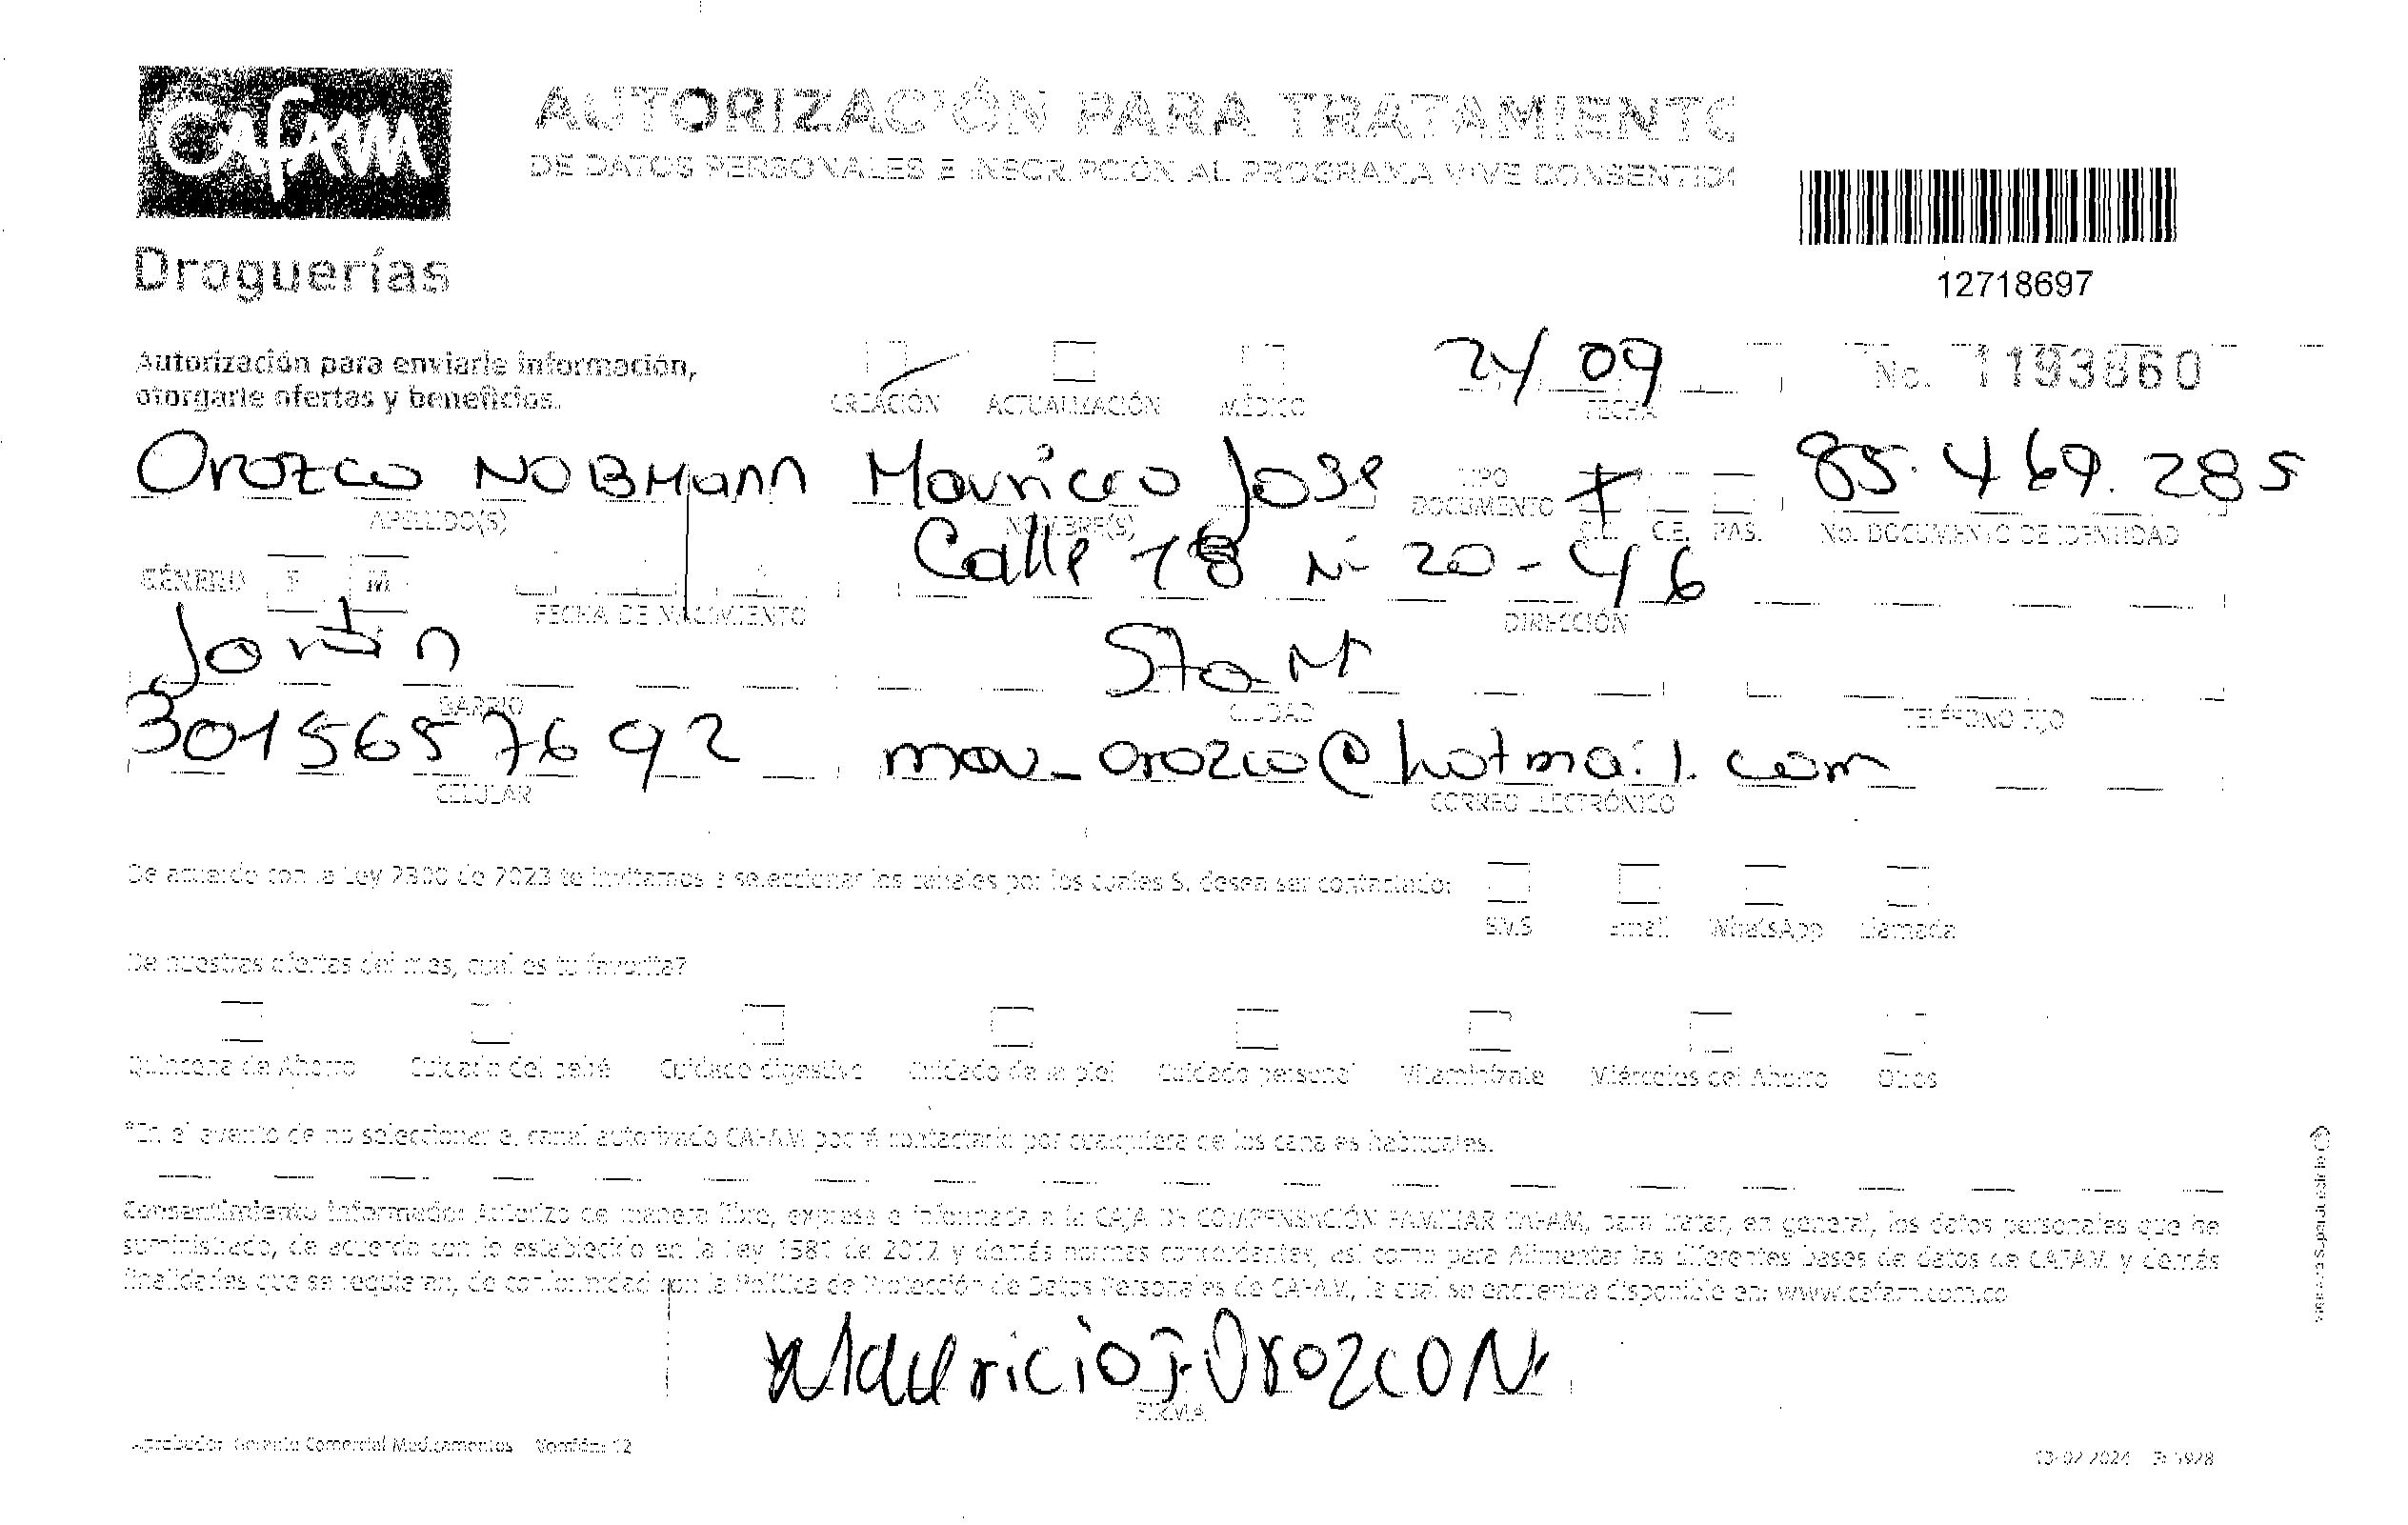 Cafam
Droguerías
AUTORIZACIÓN PARA TRATAMIENTO
DE DATOS PERSONALES E INSCRIPCIÓN AL PROGRAMA VIVE CONSENTIDO
12718697
Autorización para enviarle información,
otorgarle ofertas y beneficios.
CREACIÓN ACTUALIZACIÓN MÉDICO
24/09
FECHA
No. 1193860
Orozco NOBMann Mauricio Jose 85.469.285
APELLIDO(S) NOMBRE(S) TIPO DOCUMENTO C.C. C.E. PAS. No. DOCUMENTO DE IDENTIDAD
GÉNERO F M Calle 18 N- 20-46
FECHA DE NACIMIENTO DIRECCIÓN
Sta M
BARRIO CIUDAD TELÉFONO FIJO
30156576 92 mau_orozco@hotmail.com
CELULAR CORREO ELECTRÓNICO
De acuerdo con la Ley 2300 de 2023 te invitamos a seleccionar los canales por los cuales SI desea ser contactado:
SMS Email WhatsApp Llamada
De nuestras ofertas del mes, cual es tu favorita?
Quincena de Ahorro Cuidado del bebé Cuidado digestivo Cuidado de la piel Cuidado personal Vitamínizate Miércoles del Ahorro Otros
*En el evento de no seleccionar el canal autorizado CAFAM podrá contactarlo por cualquiera de los canales habituales.
Consentimiento Informado: Autorizo de manera libre, expresa e informada a la CAJA DE COMPENSACIÓN FAMILIAR CAFAM, para tratar, en general, los datos personales que he
suministrado, de acuerdo con lo establecido en la Ley 1581 de 2012 y demás normas concordantes, así como para Alimentar las diferentes bases de datos de CAFAM y demás
finalidades que se requieran, de conformidad con la Política de Protección de Datos Personales de CAFAM, la cual se encuentra disponible en: www.cafam.com.co
Mauricio J. Orozco N.
FIRMA
Aprobador Gerente Comercial Medicamentos Versión: 12
13-02-2024